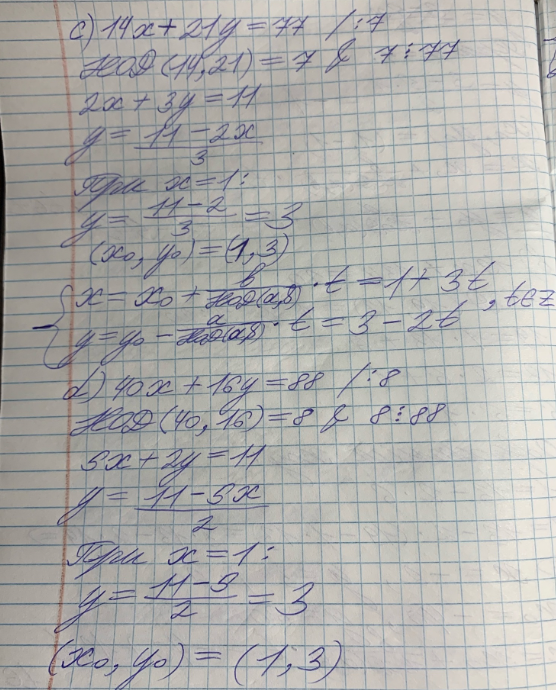 c) 14x + 21y = 77 /:7
НОД (14, 21) = 7 & 7⋮77
2x + 3y = 11
y = (11 - 2x)/3
При x = 1:
y = (11 - 2)/3 = 3
(x₀, y₀) = (1, 3)
{ x = x₀ + b/НОД(a,b) · t = 1 + 3t
y = y₀ - a/НОД(a,b) · t = 3 - 2t , t∈Z
d) 40x + 16y = 88 /:8
НОД (40, 16) = 8 & 8⋮88
5x + 2y = 11
y = (11 - 5x)/2
При x = 1:
y = (11 - 5)/2 = 3
(x₀, y₀) = (1, 3)